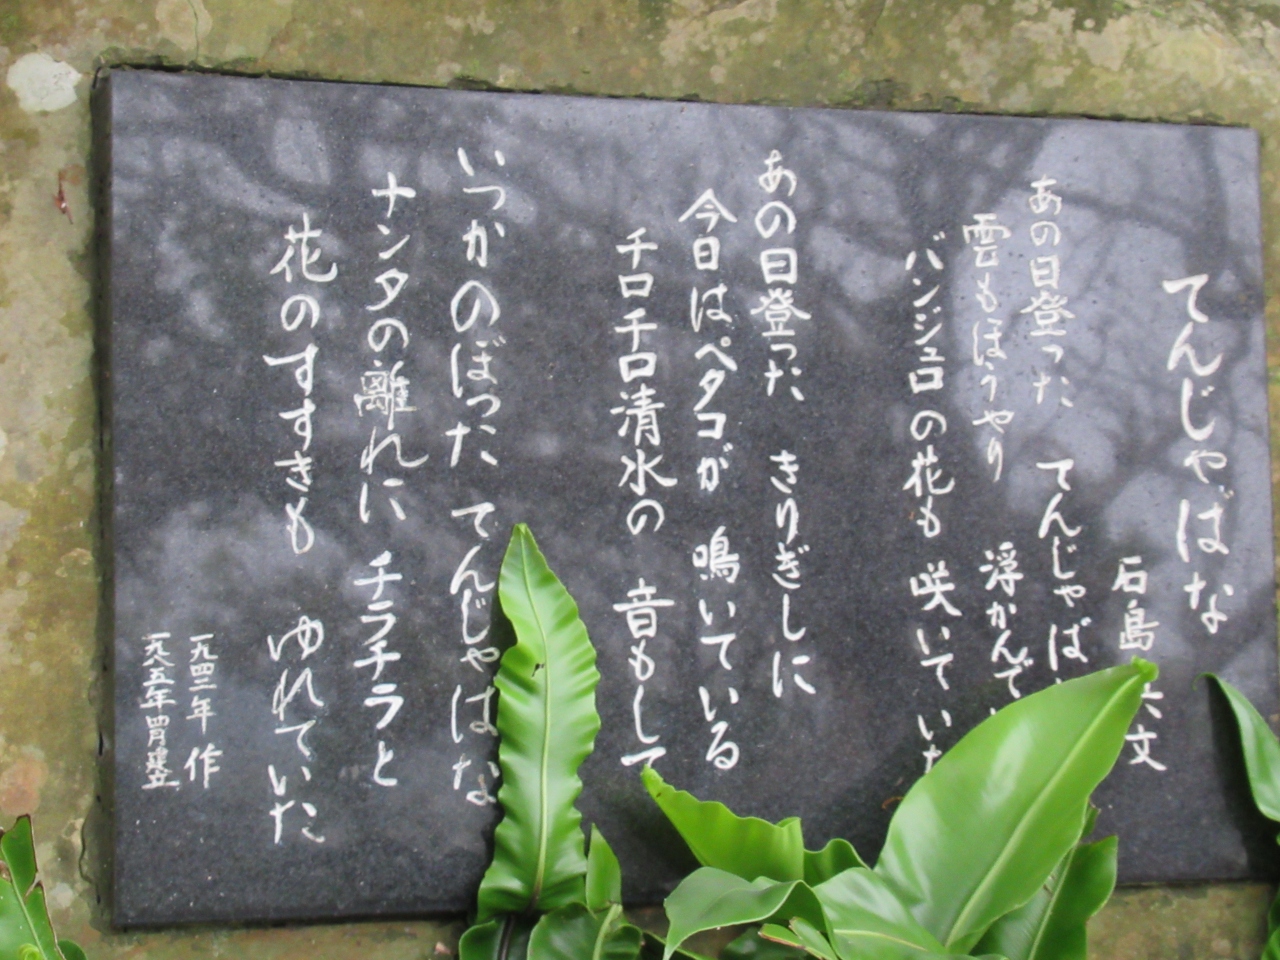 てんじゃばな
石島 文
あの日登った てんじゃば
雲もほうやり 浮かんで
バンジュロの花も 咲いていた
あの日登った きりぎしに
今日はペタコが 鳴いている
チロチロ清水の 音もして
いつかのぼった てんじゃばな
ナンタの離れに チラチラと
花のすすきも ゆれていた
一九四二年 作
一九八五年 四月建立